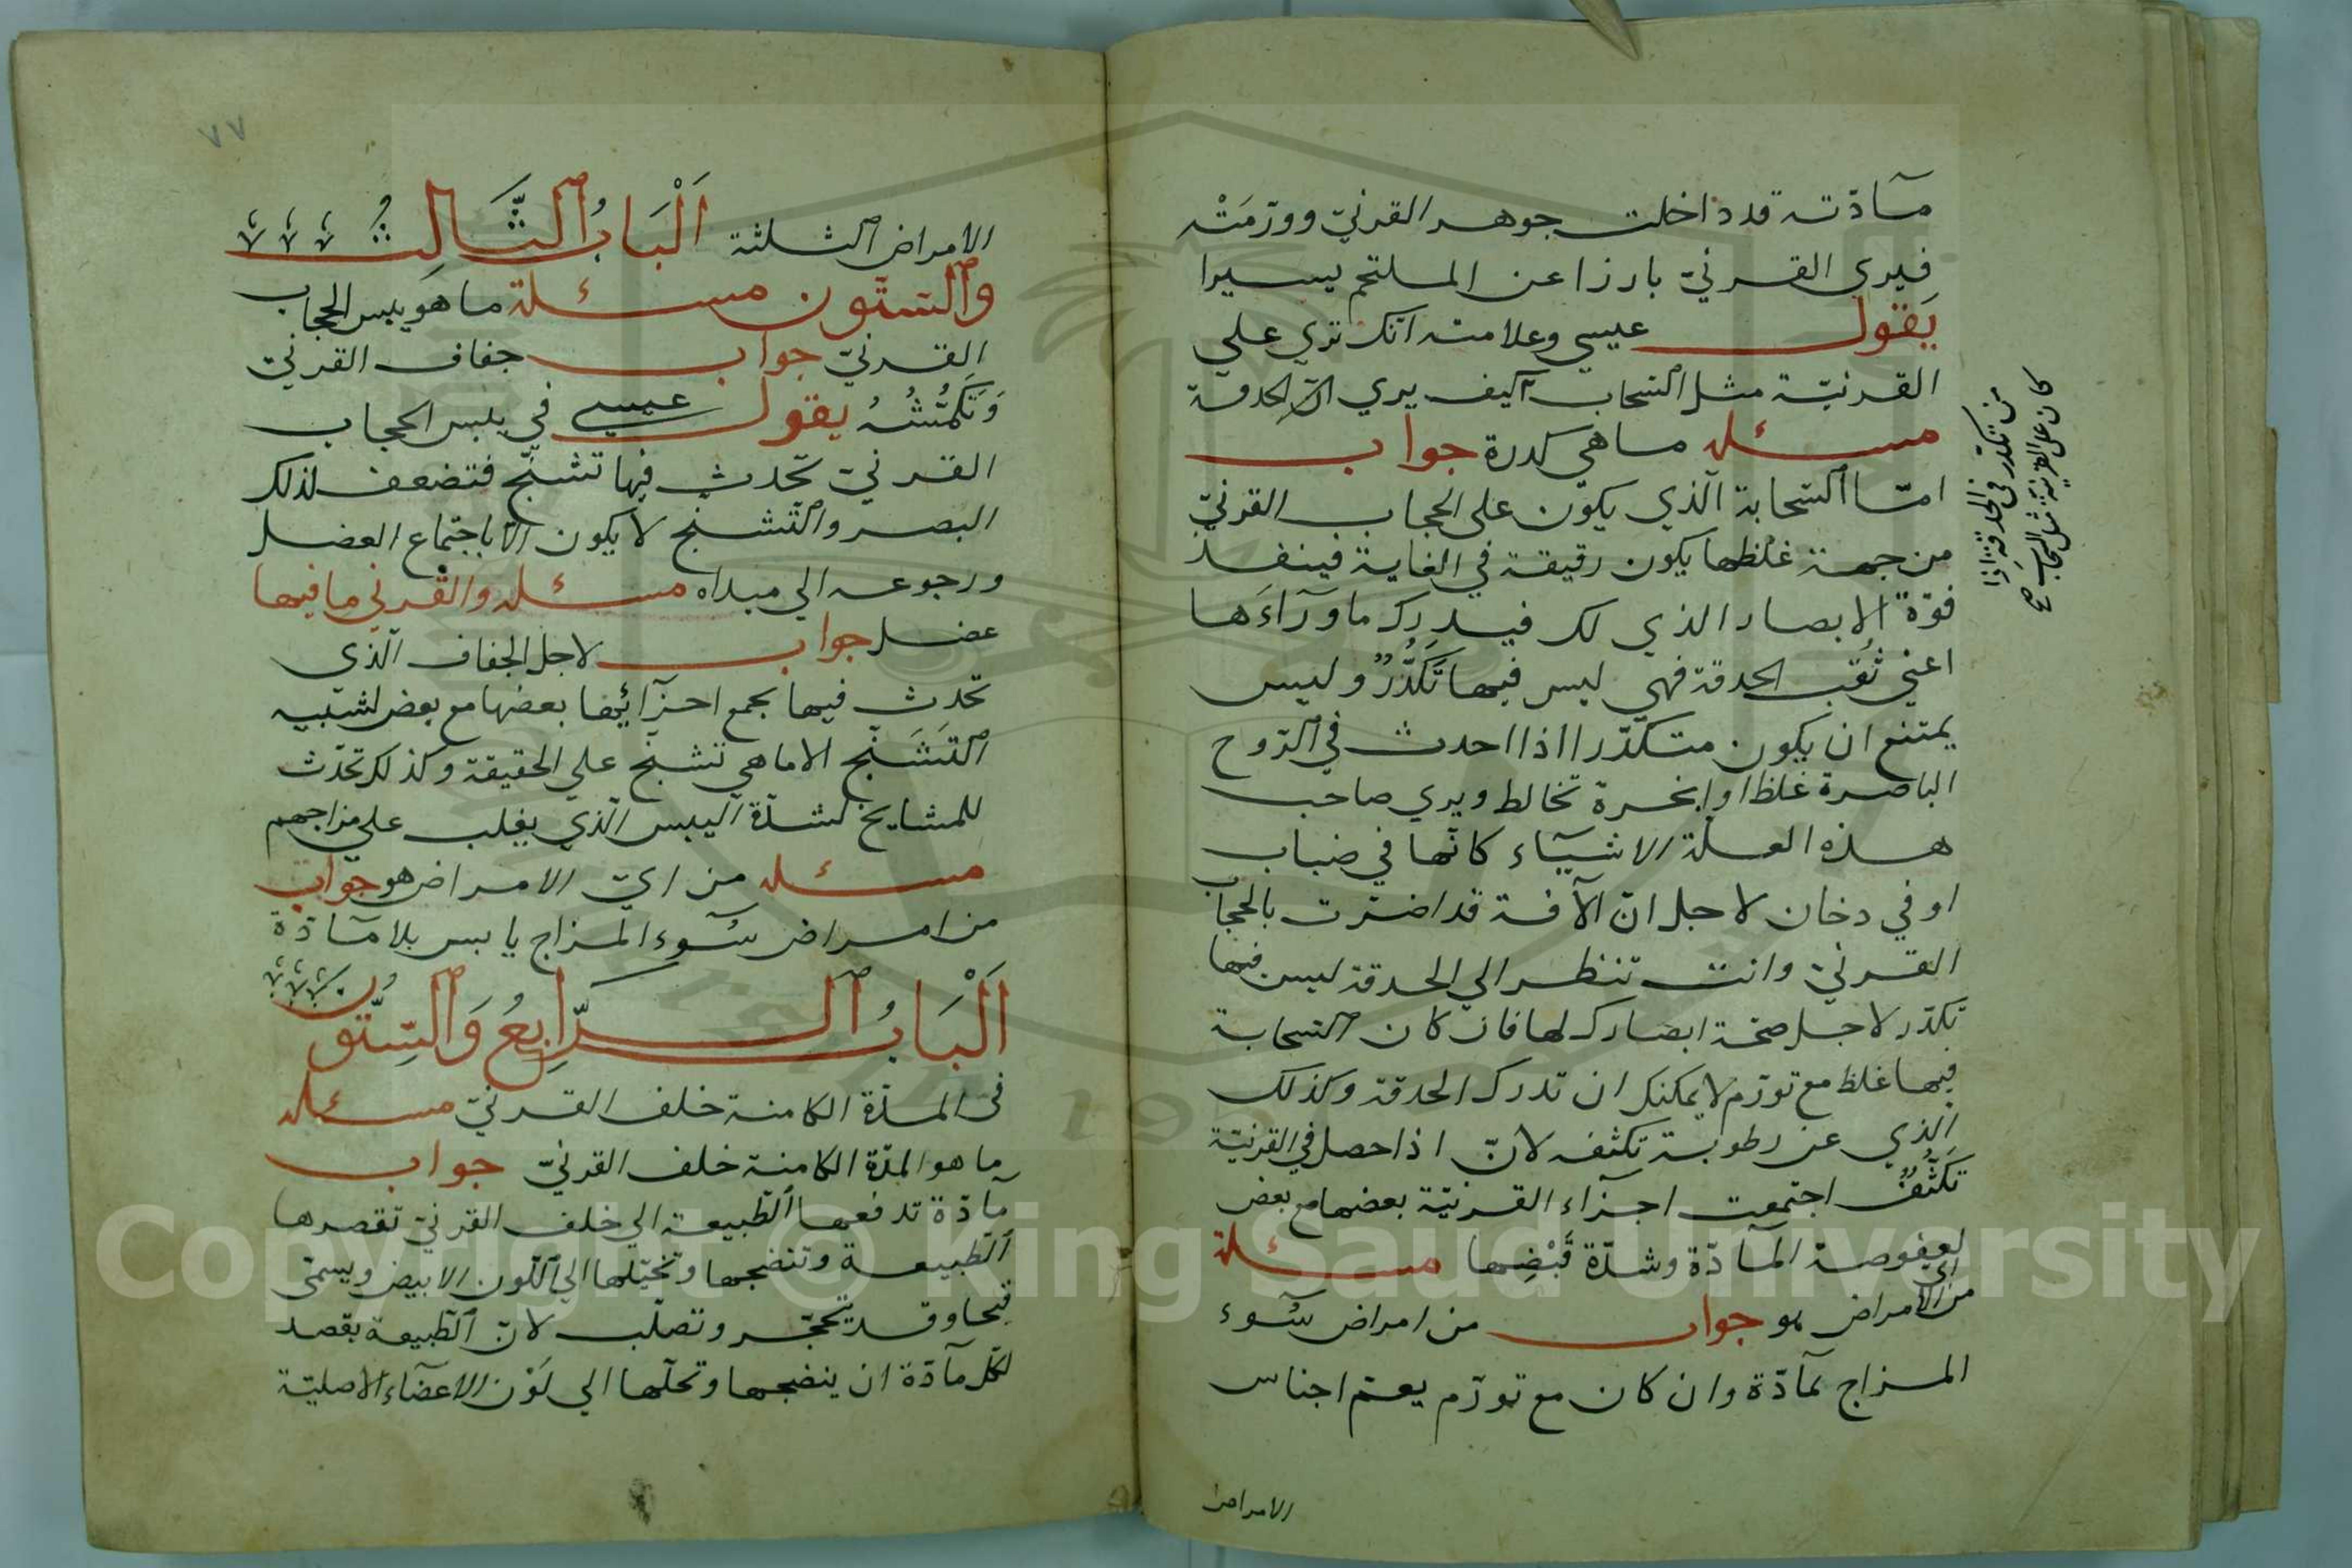 مآدّته قد داخلت جوهر القرنيّ وورّمَتْه
فيرى القرنيّ بارزا عن الملتحم يسيرا
يَقول عيسي وعلامته انّك تري علي
القرنيّة مثل السّحاب كيف يري الحدقة
مسئله ماهي كدرة جواب
امّا السّحابة الّذي يكون على الحجاب القرنيّ
من جهة غلظها يكون رقيقة في الغاية فينفد
قوّة الابصار الذي لك فيدرك ماورآءَها
اعني ثُقب الحدقة فهي ليس فيها تَكدُّرٌ وليس
يمتنع ان يكون متكدّرا اذا احدث في الرّوح
الباصرة غلظا وابخرة تخالط ويري صاحب
هذه العلّة الاشيآء كانّها في ضباب
او في دخان لاجل انّ الآفة قد اضرّت بالحجاب
القرنيّ وانت تنظر الي الحدقة ليس فيها
تكدّر لاجل صحّة ابصارك لها فان كان السّحابة
فيها غلظ مع تورّم لا يمكنك ان تدرك الحدقة وكذلك
الّذي عن رطوبة تكثف لانّ اذا حصل في القرنيّة
تَكَثُّفٌ اجتمعت اجزآء القرنيّة بعضها مع بعض
لعفوصة المآدّة وشدّة قَبْضِها مسئلة
من اي الامراض هو جواب من امراض سُوء
المزاج بمآدّة وان كان مع تورّم يعمّ اجناس
الامراض
من تكدّر في الحدقة اذا
كان على القرنيّة مثل السحاب صح
٧٧
الامراض الثلثة اَلْبَابُ الثَّالِثُ
والستّون مسئلة ما هو يبس الحجاب
القرنيّ جواب جفاف القرنيّ
وَتَكمُّشُهُ يقول عيسي في يبس الحجاب
القرنيّ تحدث فيها تشنّج فتضعف لذلك
البصر والتّشنّج لا يكون الا باجتماع العضل
ورجوعه الي مبداه مسئله والقرني ما فيها
عضل جواب لاجل الجفاف الّذي
تحدث فيها بجمع اجزآئها بعضها مع بعض لشبيه
التَشَنّج الا ماهي تشنّج علي الحقيقة وكذلك تحدّث
للمشايخ لشدّة اليبس الّذي يغلب علي مزاجهم
مسئله من ايّ الامراض هو جواب
من امراض سُوء المزاج يابس بلا مآدّة
اَلْبَابُ الرَّابِعُ وَالسِّتُّون
فى المدّة الكامنة خلف القرنيّ مسئله
ما هو المدّة الكامنة خلف القرنيّ جواب
مآدّة تدفعها الطّبيعة الي خلف القرنيّ تقصرها
الطّبيعة وتنضجها وتحيّلها الي اللّون الابيض ويسمّى
قيحا وقد يتحجّر وتصلّب لانّ الطّبيعة بقصد
لكلّ مآدّة ان ينضجها وتحلّها الي لَوْن الاعضآء الاصليّة
Copyright © King Saud University